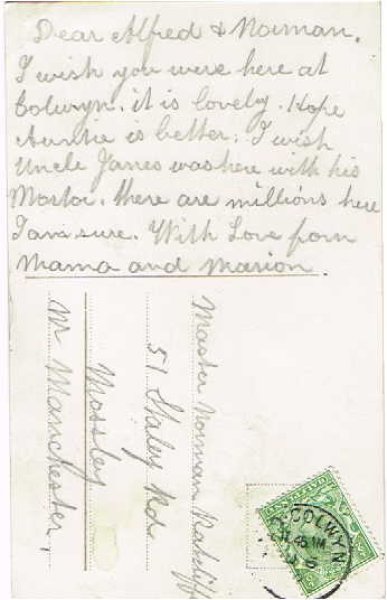 Dear Alfred & Norman.
I wish you were here at
Colwyn. it is lovely. Hope
Auntie is better. I wish
Uncle James was here with his
Mostor. there are millions here
I am sure. With Love from
Mama and Marion.
Master Norman Ratcliffe
51 Staley Rd
Mossley
Nr Manchester,
COLWYN